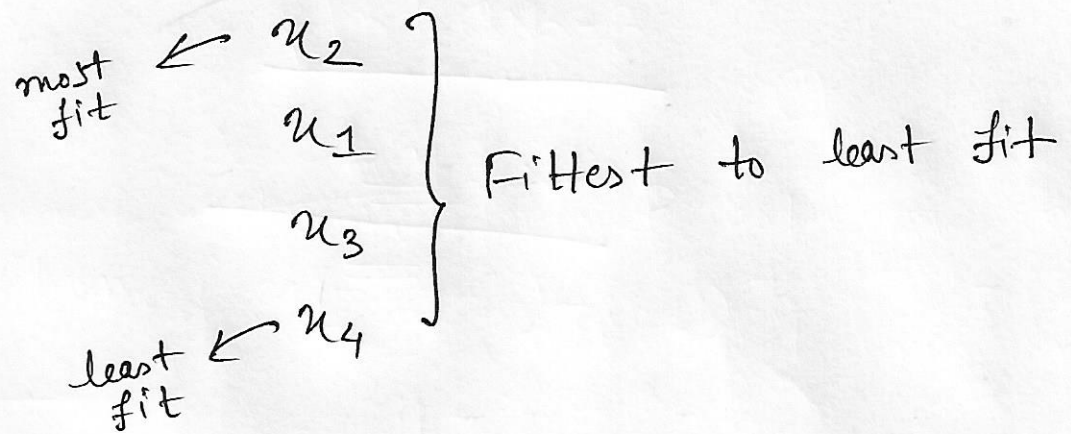 most
fit
← x₂
x₁
x₃
← x₄
least
fit
} Fittest to least fit